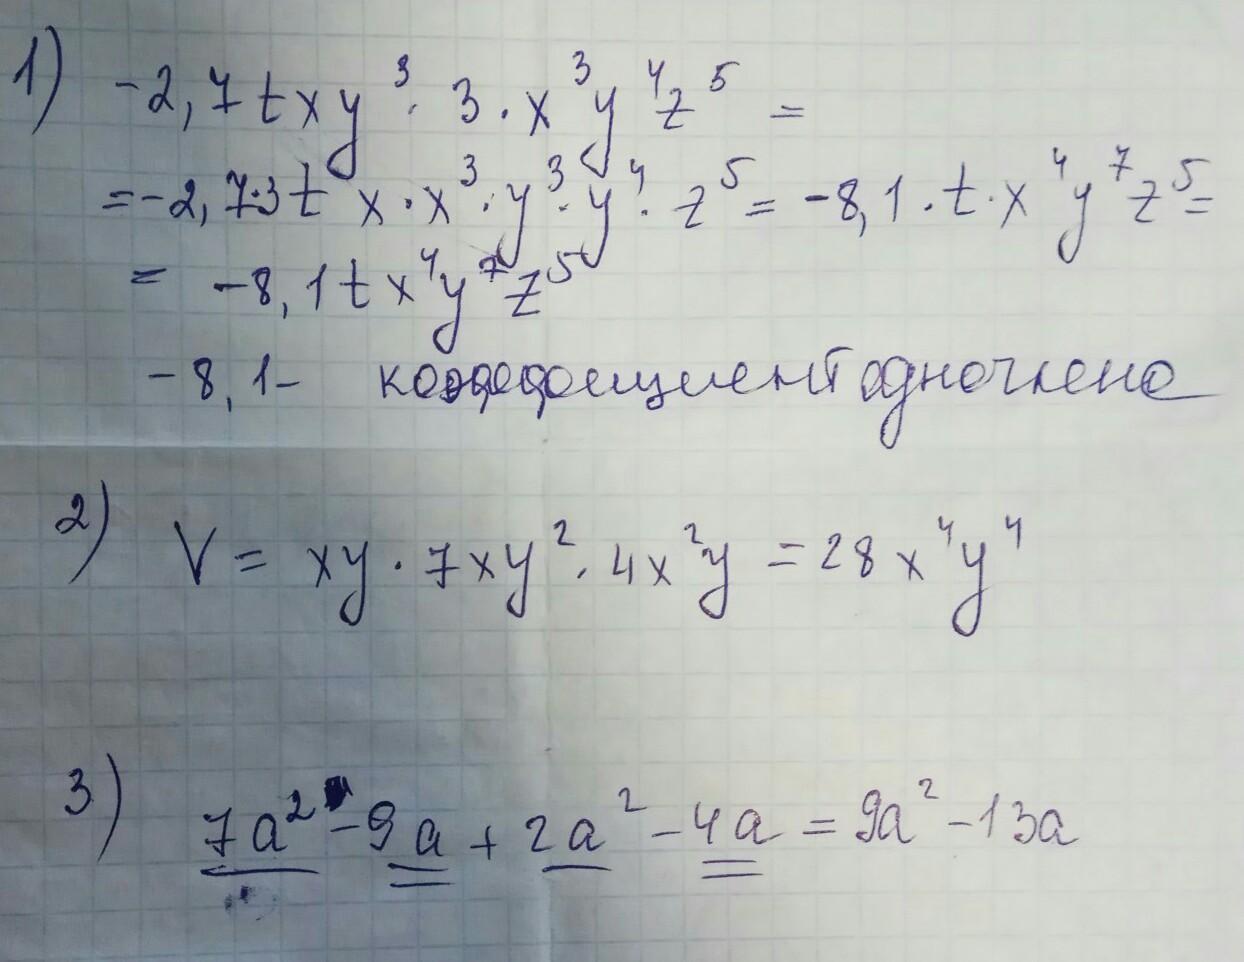 1) -2,7txy³ · 3 · x³y⁴z⁵ =
= -2,7·3t x · x³ · y³ · y⁴ · z⁵ = -8,1 · t · x⁴y⁷z⁵ =
= -8,1tx⁴y⁷z⁵
-8,1 - коэффициент одночлена
2) V = xy · 7xy² · 4x²y = 28x⁴y⁴
3) 7a² - 9a + 2a² - 4a = 9a² - 13a